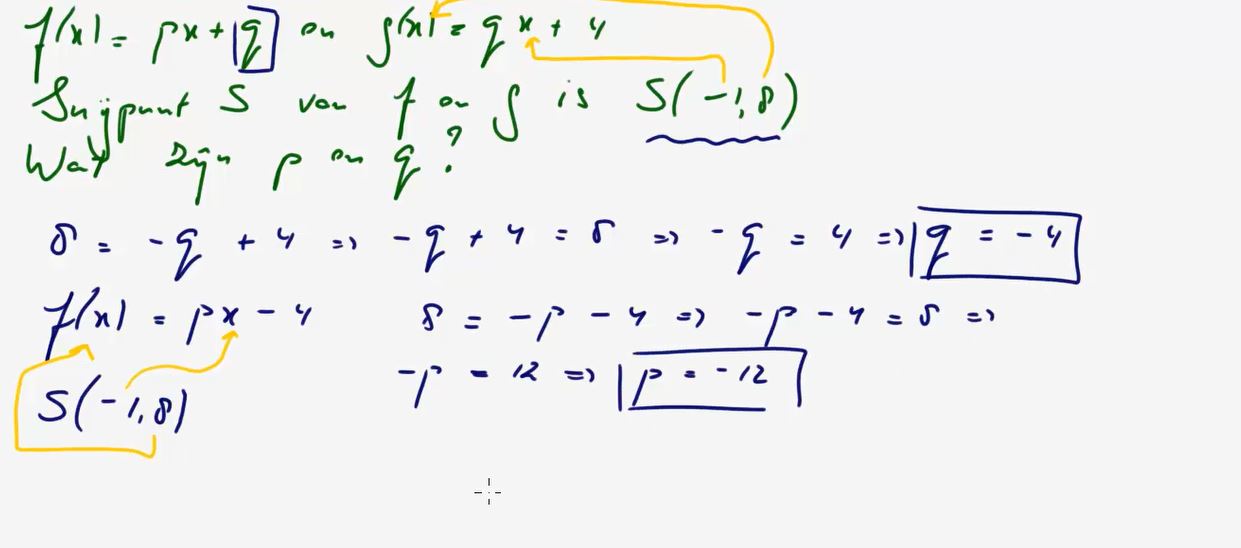 f(x) = px + q en g(x) = qx + 4
Snijpunt S van f en g is S(-1,8)
Wat zijn p en q?
8 = -q + 4 => -q + 4 = 8 => -q = 4 => q = -4
f(x) = px - 4 8 = -p - 4 => -p - 4 = 8 =>
-p = 12 => p = -12
S(-1,8)